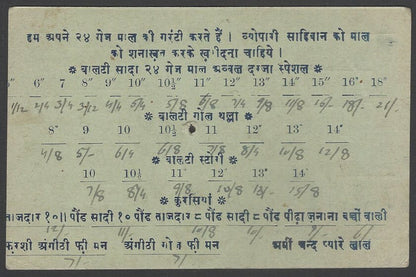 हम अपने २४ गेज माल की गरंटी करते हैं । व्योपारी साहिबान को माल
को शनाखत करके खरीदना चाहिये ।
❊ बालटी सादा २४ गेज माल अव्वल दरजा स्पेशल ❊
6" 7" 8" 9" 10" 10½" 11" 12" 13" 14" 15" 16" 18"
2/4 3/4 3/12 4/4 5/4 5/8 6/8 7/4 9/8 11/8 15/- 18/- 21/-
❊ बालटी गोल थल्ला ❊
8" 9 10 10½ 11 12" 13" 14"
4/8 5/- 6/4 6/8 7/8 8/4 10/8 12/8
❊ बालटी स्टोंग ❊
10 10½ 11" 12" 13" 14"
7/8 8/4 9/8 10/8 13/- 15/8
❊ कुरसियां ❊
ताजदार १०॥ पौंड सादी १० पौंड ताजदार ८ पौंड सादी ८ पौंड पीढ़ा ज़नाना बच्चों वाली
11/8 11/- 10/8 10/- 6/-
फ़रशी अंगीठी फी मन अंगीठी गोल फी मन अमीं चन्द प्यारे लाल